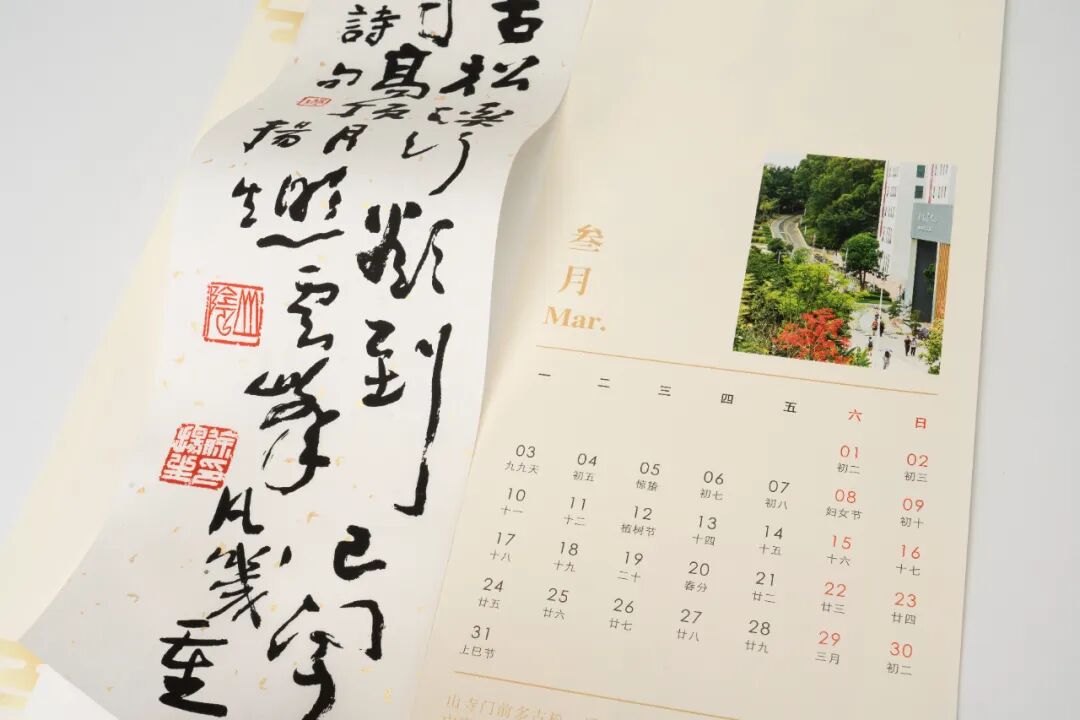 古松溪行欲到已闻
高顶月照云峯凡幾重
詩句
山陰
叁
月
Mar.
一 二 三 四 五 六 日
01 02
初二 初三
03 04 05 06 07 08 09
九九天 初五 惊蛰 初七 初八 妇女节 初十
10 11 12 13 14 15 16
十一 十二 植树节 十四 十五 十六 十七
17 18 19 20 21 22 23
十八 十九 二十 春分 廿二 廿三 廿四
24 25 26 27 28 29 30
廿五 廿六 廿七 廿八 廿九 三月 初二
31
上巳节
山寺门前多古松